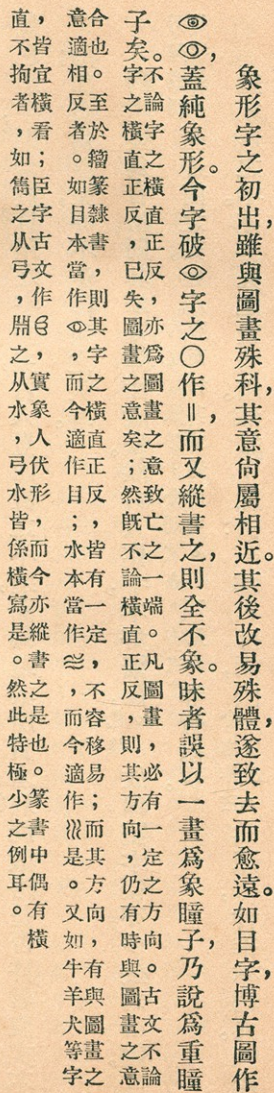 象形字之初出,雖與圖畫殊科,其意尙屬相近。其後改易殊體,遂致去而愈遠。如目字,博古圖作
,蓋純象形。今字破字之○作‖,而又縱書之,則全不象。昧者誤以一畫爲象瞳子,乃說爲重瞳
子矣。不論字之橫直正反,亦爲圖畫之意致亡之一端。凡圖畫,必有一定之方向。古文不論
字之橫直正反,已失圖畫之意矣;然旣不論橫直正反,則其方向,仍有時與圖畫之意
合也。至於籀篆隸書,則其字之橫直正反,皆有一定,不容移易;而其方向,有與圖畫之
意適相反者。如目本當作,而今適作目;水本當作,而今適作是。又如牛羊犬等字
,皆宜橫看;臣字古文作,實象人伏形,而今亦縱書之是也。篆書中偶有橫
直不拘者,如雋之从弓,之从水,弓水皆係橫寫是。然此特極少之例耳。